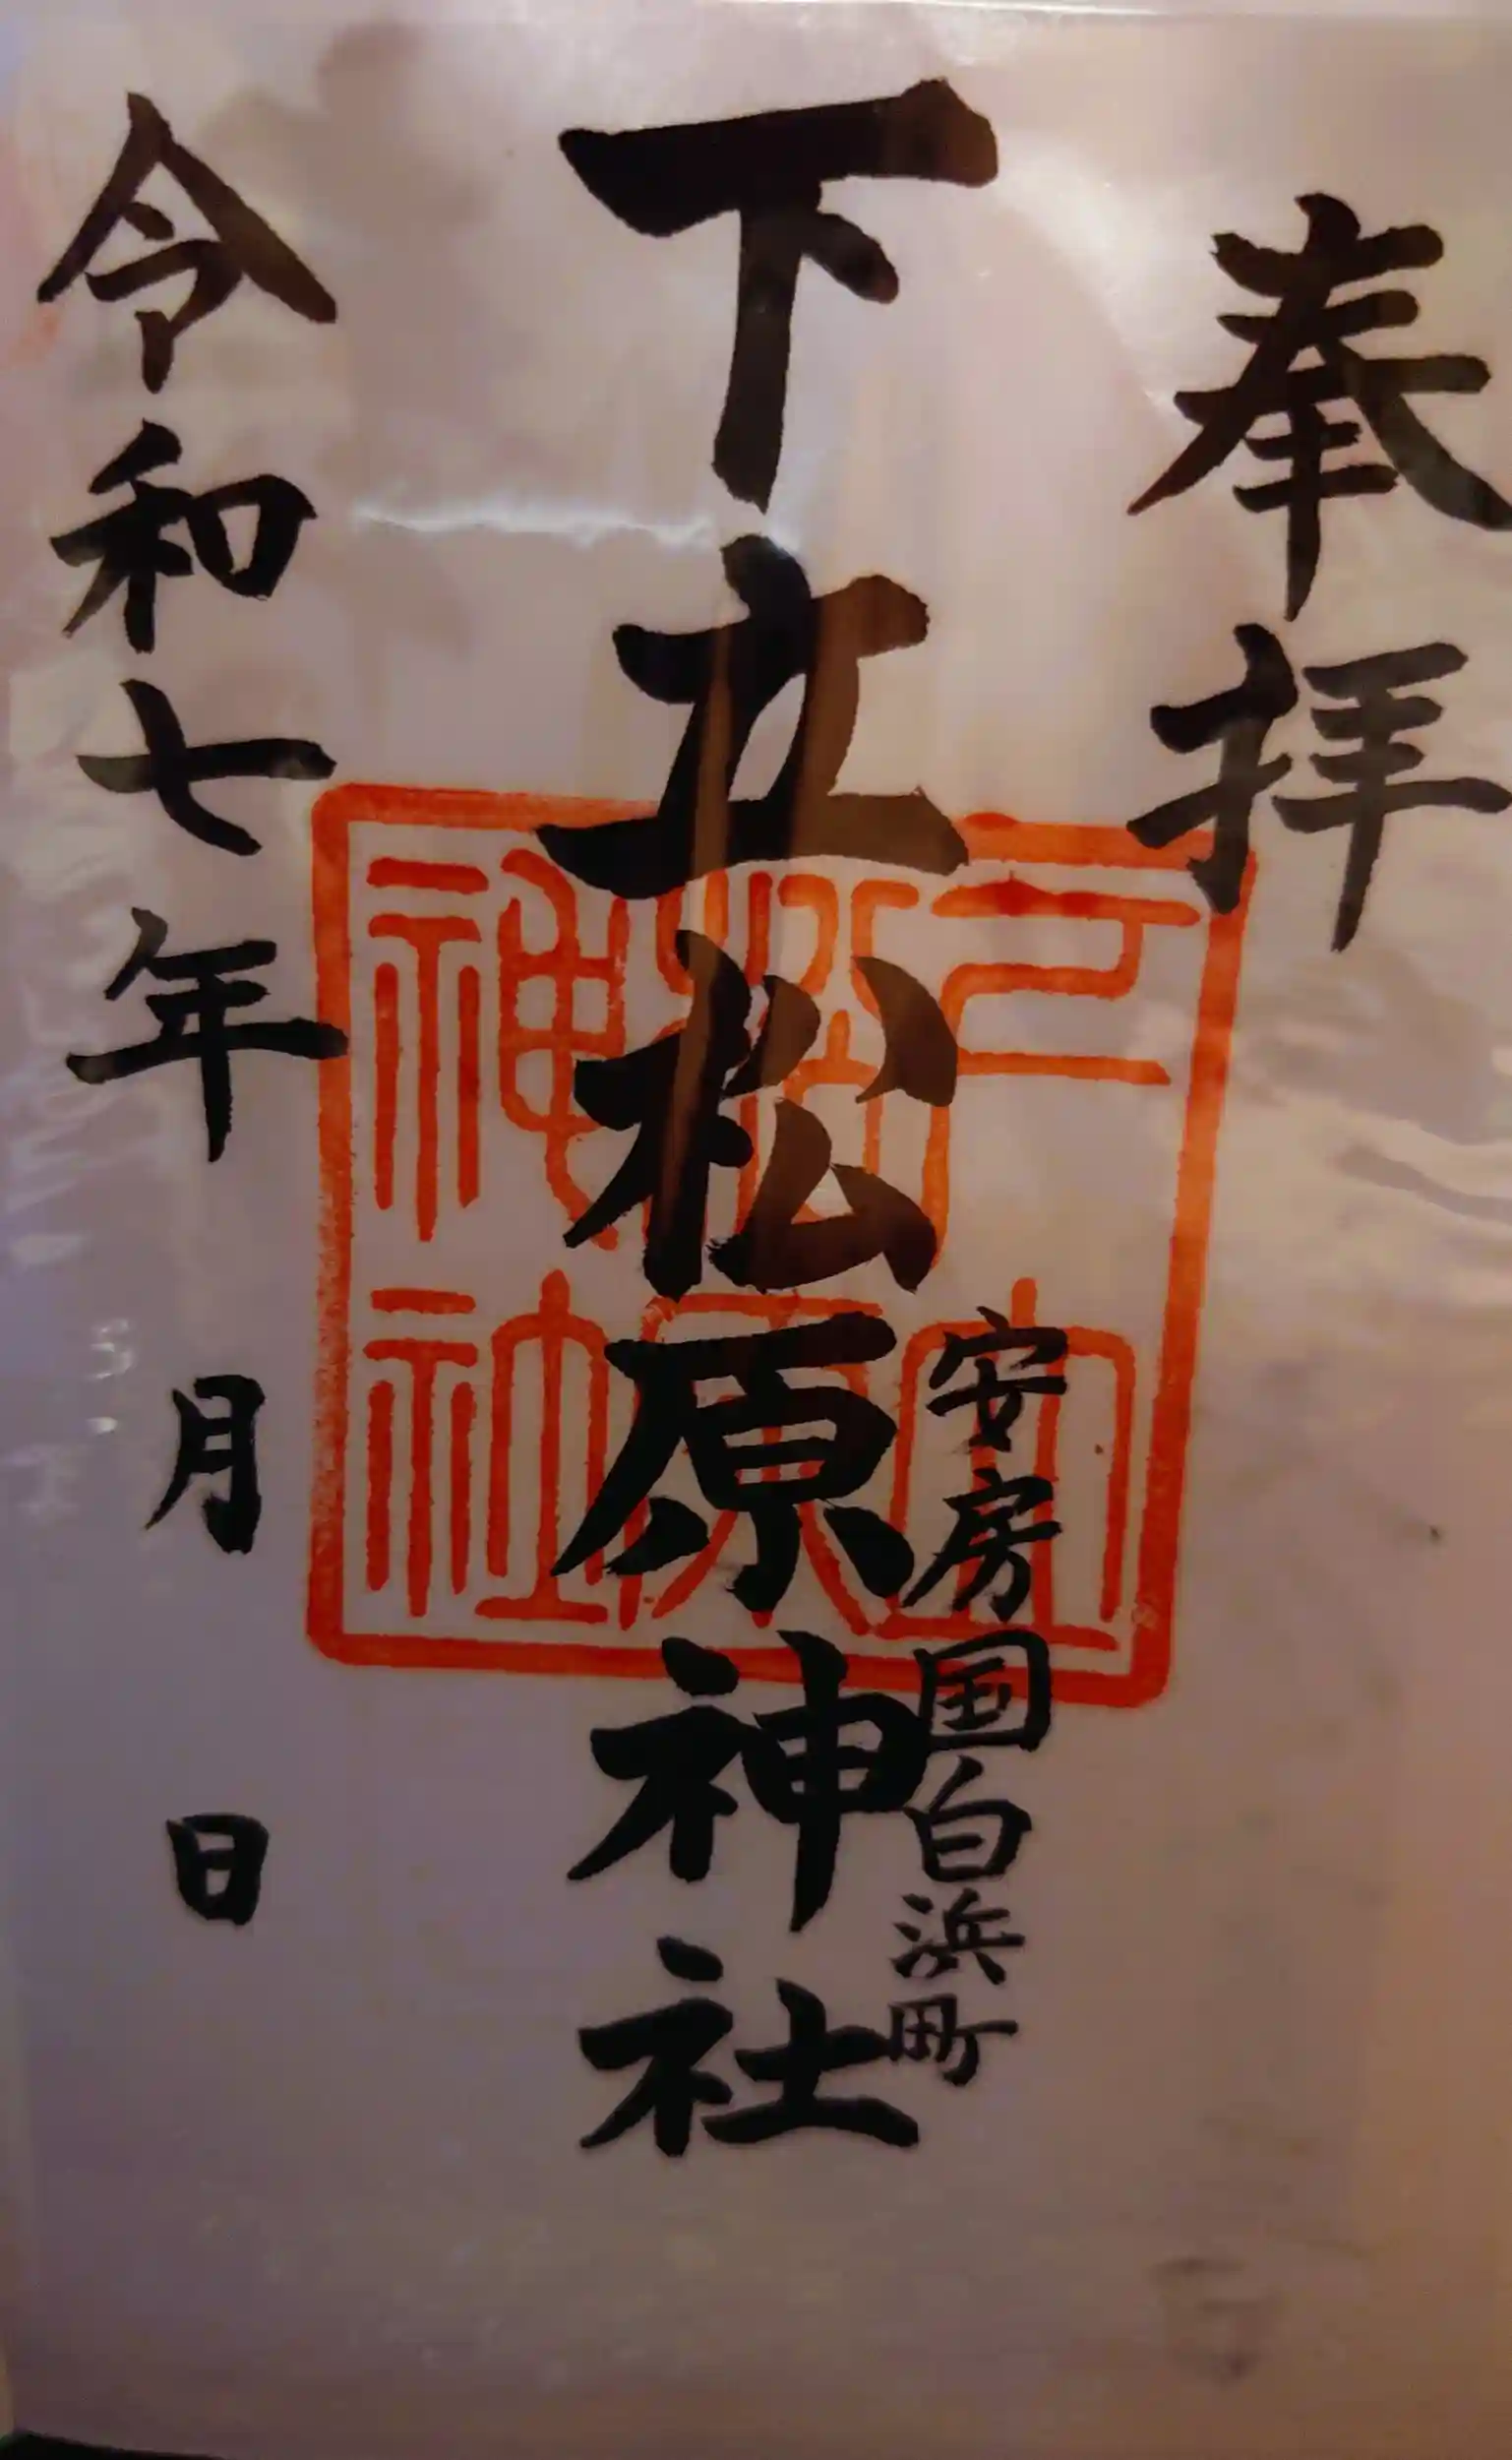 奉拝
安房国白浜町
下立松原神社
下立松原神社
令和七年 月 日